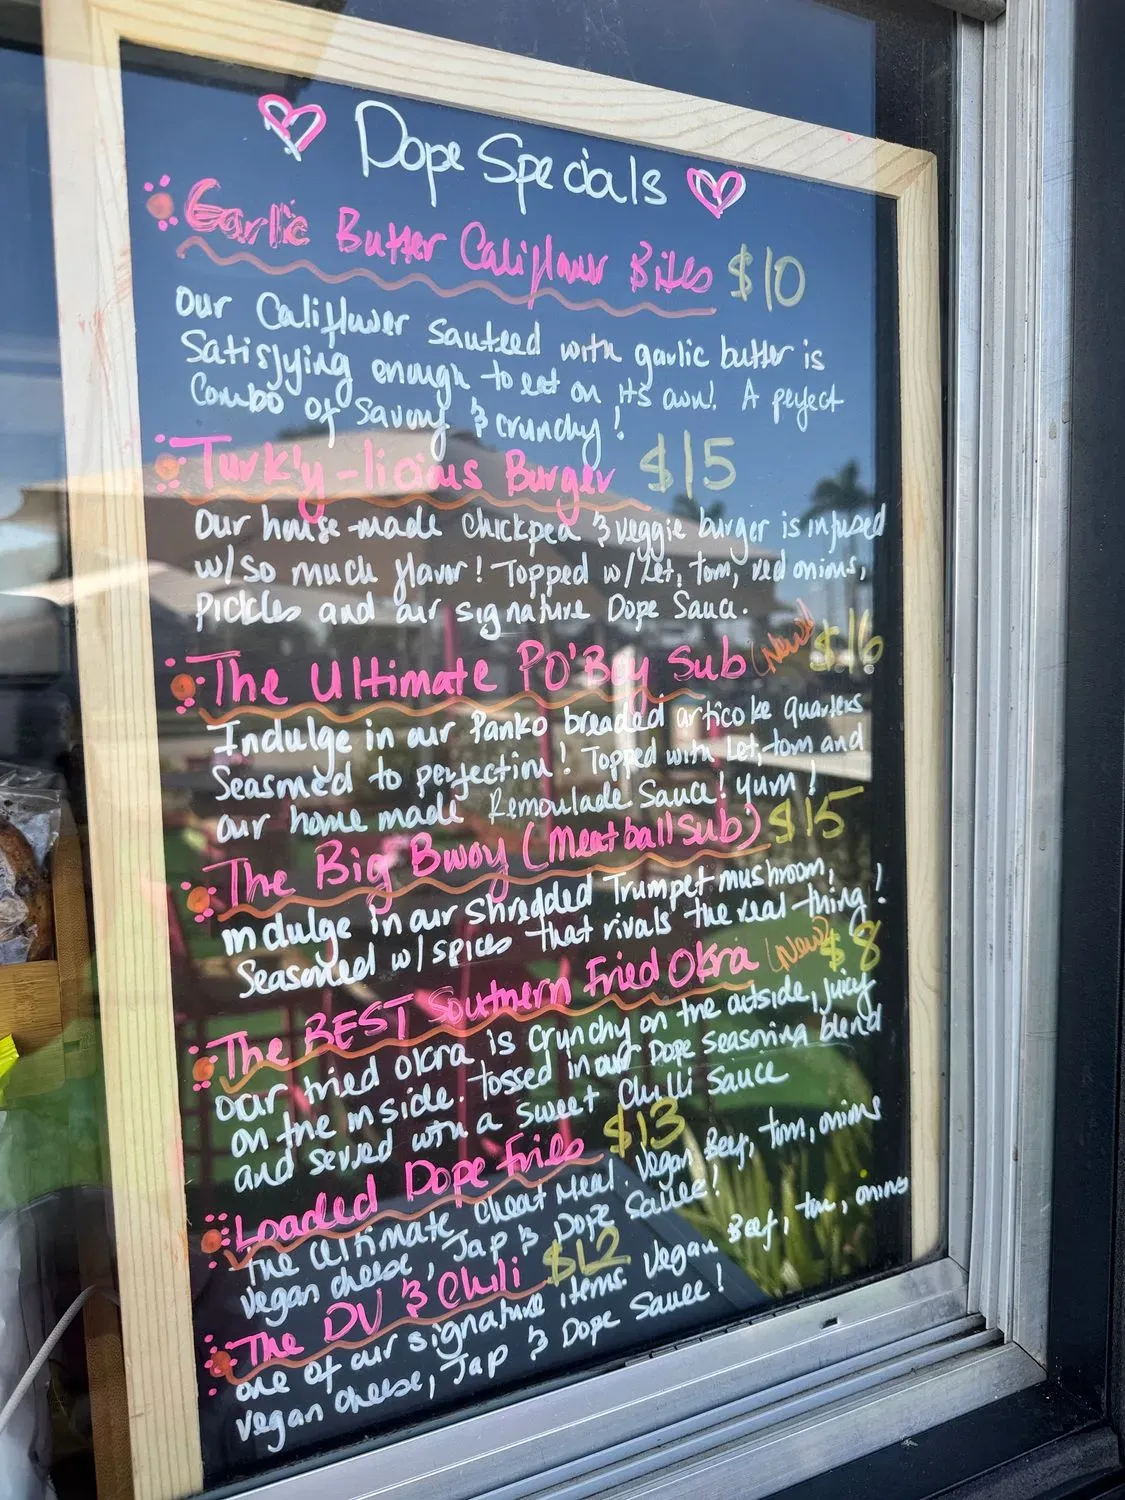 Dope Specials
Garlic Butter Califlower Bites $10
Our Califlower sauteed with garlic butter is
Satisfying enough to eat on it's own! A perfect
Combo of Savory & crunchy!
Turk'y-licious Burger $15
Our house-made Chickpea & veggie burger is infused
w/so much flavor! Topped w/Let, tom, red onions,
pickles and our signature Dope Sauce.
The Ultimate PO'Boy Sub (New!) $16
Indulge in our Panko breaded articoke quarters
Seasoned to perfection! Topped with Let, tom and
our home made Remoulade Sauce! Yum!
The Big Bwoy (Meatball Sub) $15
Indulge in our shredded Trumpet mushroom,
Seasoned w/spices that rivals the real thing!
The BEST Southern Fried Okra (New) $8
Our fried okra is crunchy on the outside, juicy
on the inside. Tossed in our Dope seasoning blend
and served with a sweet Chilli Sauce
Loaded Dope Fries $13
The Ultimate Cheat Meal. Vegan Beef, tom, onions
vegan cheese, Jap & Dope Sauce!
The DV & Chili $12
One of our signature items. Vegan Beef, tom, onions
vegan cheese, Jap & Dope Sauce!